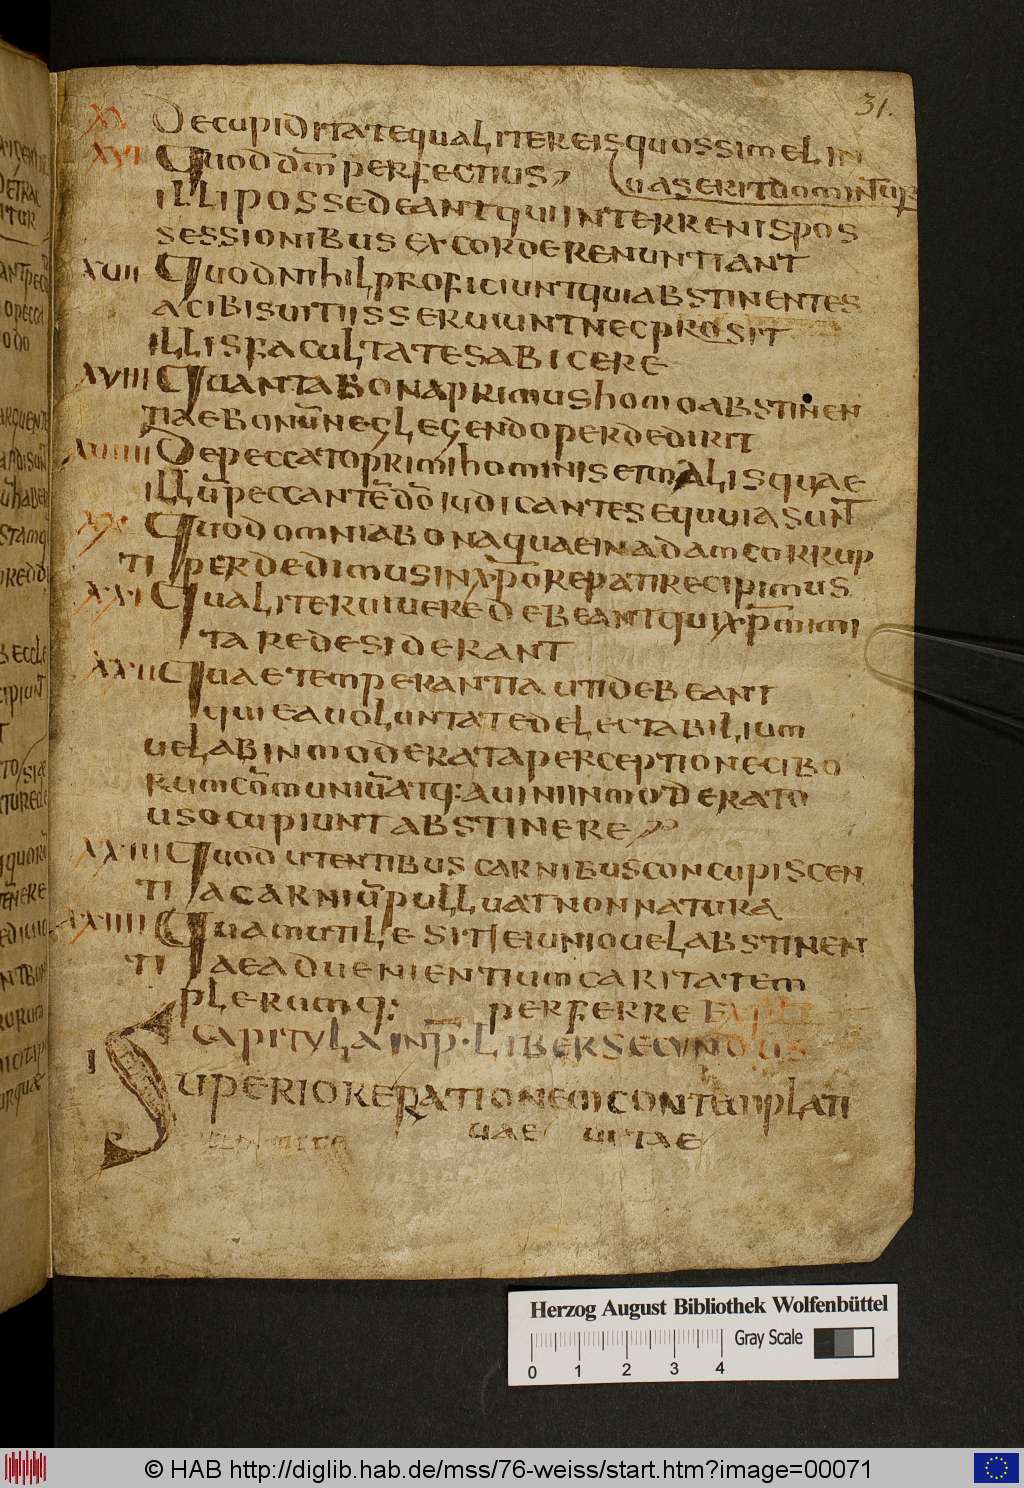 31.
XV De cupiditate qualiter eis quos simel in
uaserit dominetur
XVI Quod dm̄ perfectius
illi possedeant qui in terrenis pos
sessionibus ex corde renuntiant
XVII Quod nihil proficiunt qui abstinentes
a cibis uitiis seruiunt nec prosit
illis facultates abicere
XVIII Quanta bona primus homo abstinen
tiae bonum̄ neglegendo perdedirit
XVIIII De peccato primi hominis et malis quae
illū peccantē dō iudicante sequuia sunt
XX Quod omnia bona quae in adam corrup
ti perdedimus in xp̄o reparti recipimus
XXI Qualiter uiuere debeant qui xp̄m imi
tare desiderant
XXII Quae temperantia uti debeant
qui ea uoluntate delectabilium
uel ab inmoderata perceptione cibo
rum com̄muniūatq: a uini inmoderato
us ocupiunt abstinere
XXIII Quod utentibus carnibus concupiscen
tia carniū pulluat non natura
XXIIII Quam utile sit ieiunio uel abstinen
tiae aduenientium caritatem
plerumq: perferre Expl
Capitula inp̄. Liber Secundus
I Superiore rationem contemplati
uae uitae
Herzog August Bibliothek Wolfenbüttel
0 1 2 3 4 Gray Scale
© HAB http://diglib.hab.de/mss/76-weiss/start.htm?image=00071